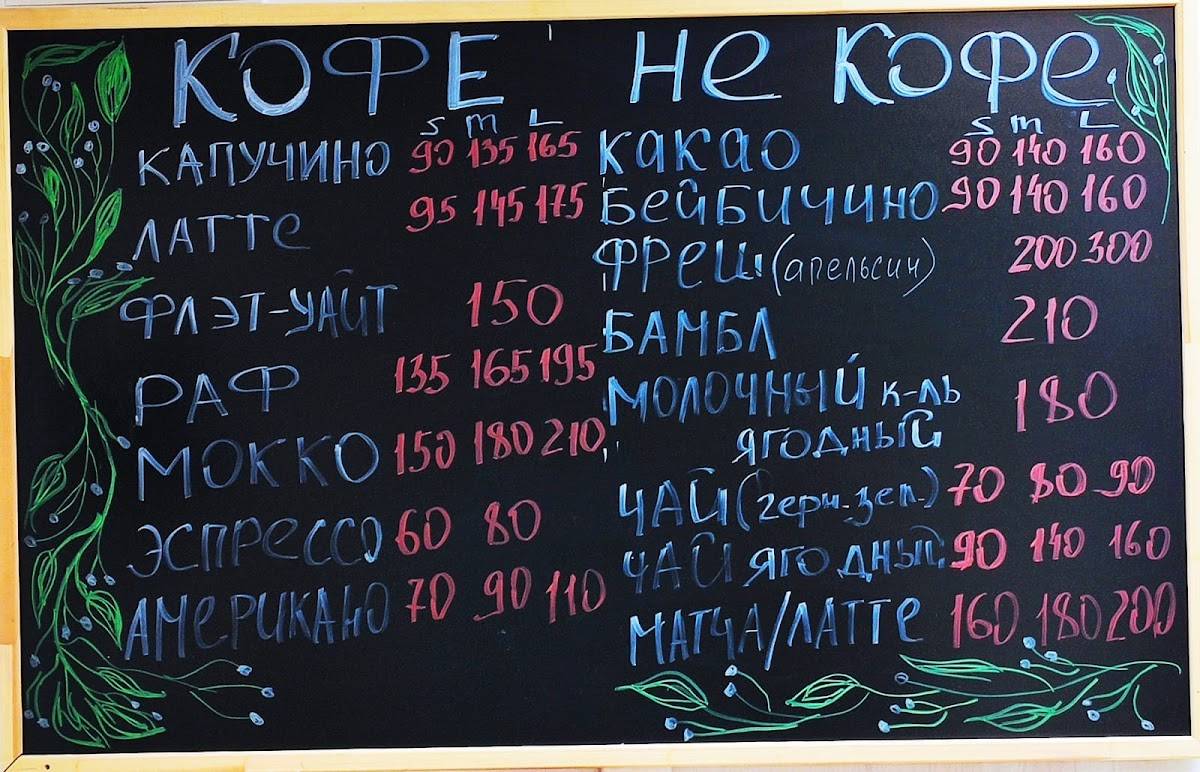 КОФЕ
S m L
КАПУЧИНО 90 135 165
ЛАТТе 95 145 175
ФЛЭТ-УАЙТ 150
РАФ 135 165 195
МОККО 150 180 210
ЭСПРеССО 60 80
АМеРИКАНО 70 90 110
Не КОФе
S m L
Какао 90 140 160
БейБИЧИНО 90 140 160
ФРеШ (апельсин) 200 300
БАМБЛ 210
МОЛОЧНЫЙ к-ль 180
ЯГОДНЫЙ
ЧАЙ (черн.зел.) 70 80 90
ЧАЙ ЯГОДНЫЙ 90 140 160
МАТЧА/ЛАТТе 160 180 200